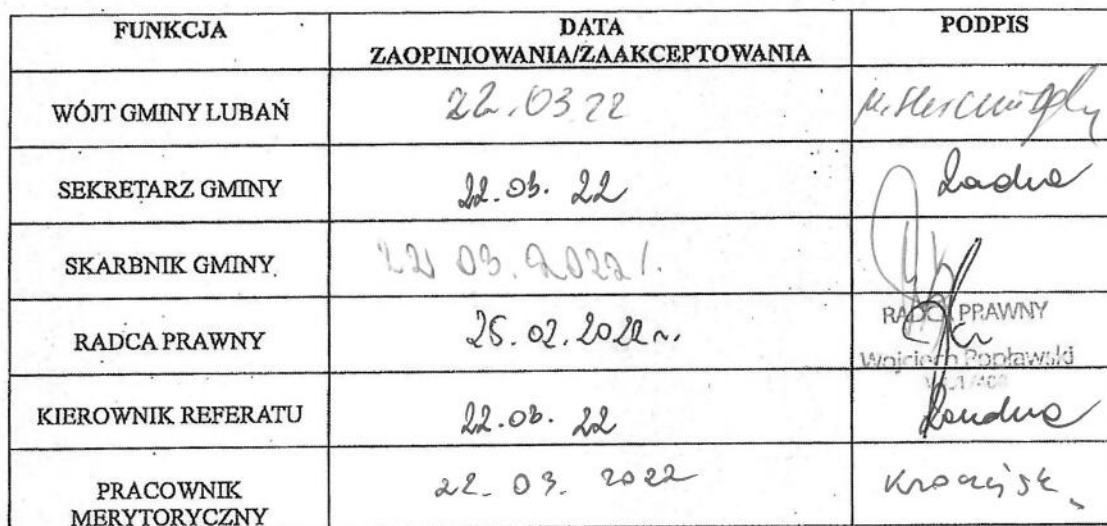 FUNKCJA
DATA
ZAOPINIOWANIA/ZAAKCEPTOWANIA
PODPIS
WÓJT GMINY LUBAŃ
22.03.22
SEKRETARZ GMINY
22.03.22
SKARBNIK GMINY
22 03.2022 r.
RADCA PRAWNY
25.02.2022 r.
RADCA PRAWNY
Wojciech Popławski
KIEROWNIK REFERATU
22.03.22
PRACOWNIK
MERYTORYCZNY
22.03.2022